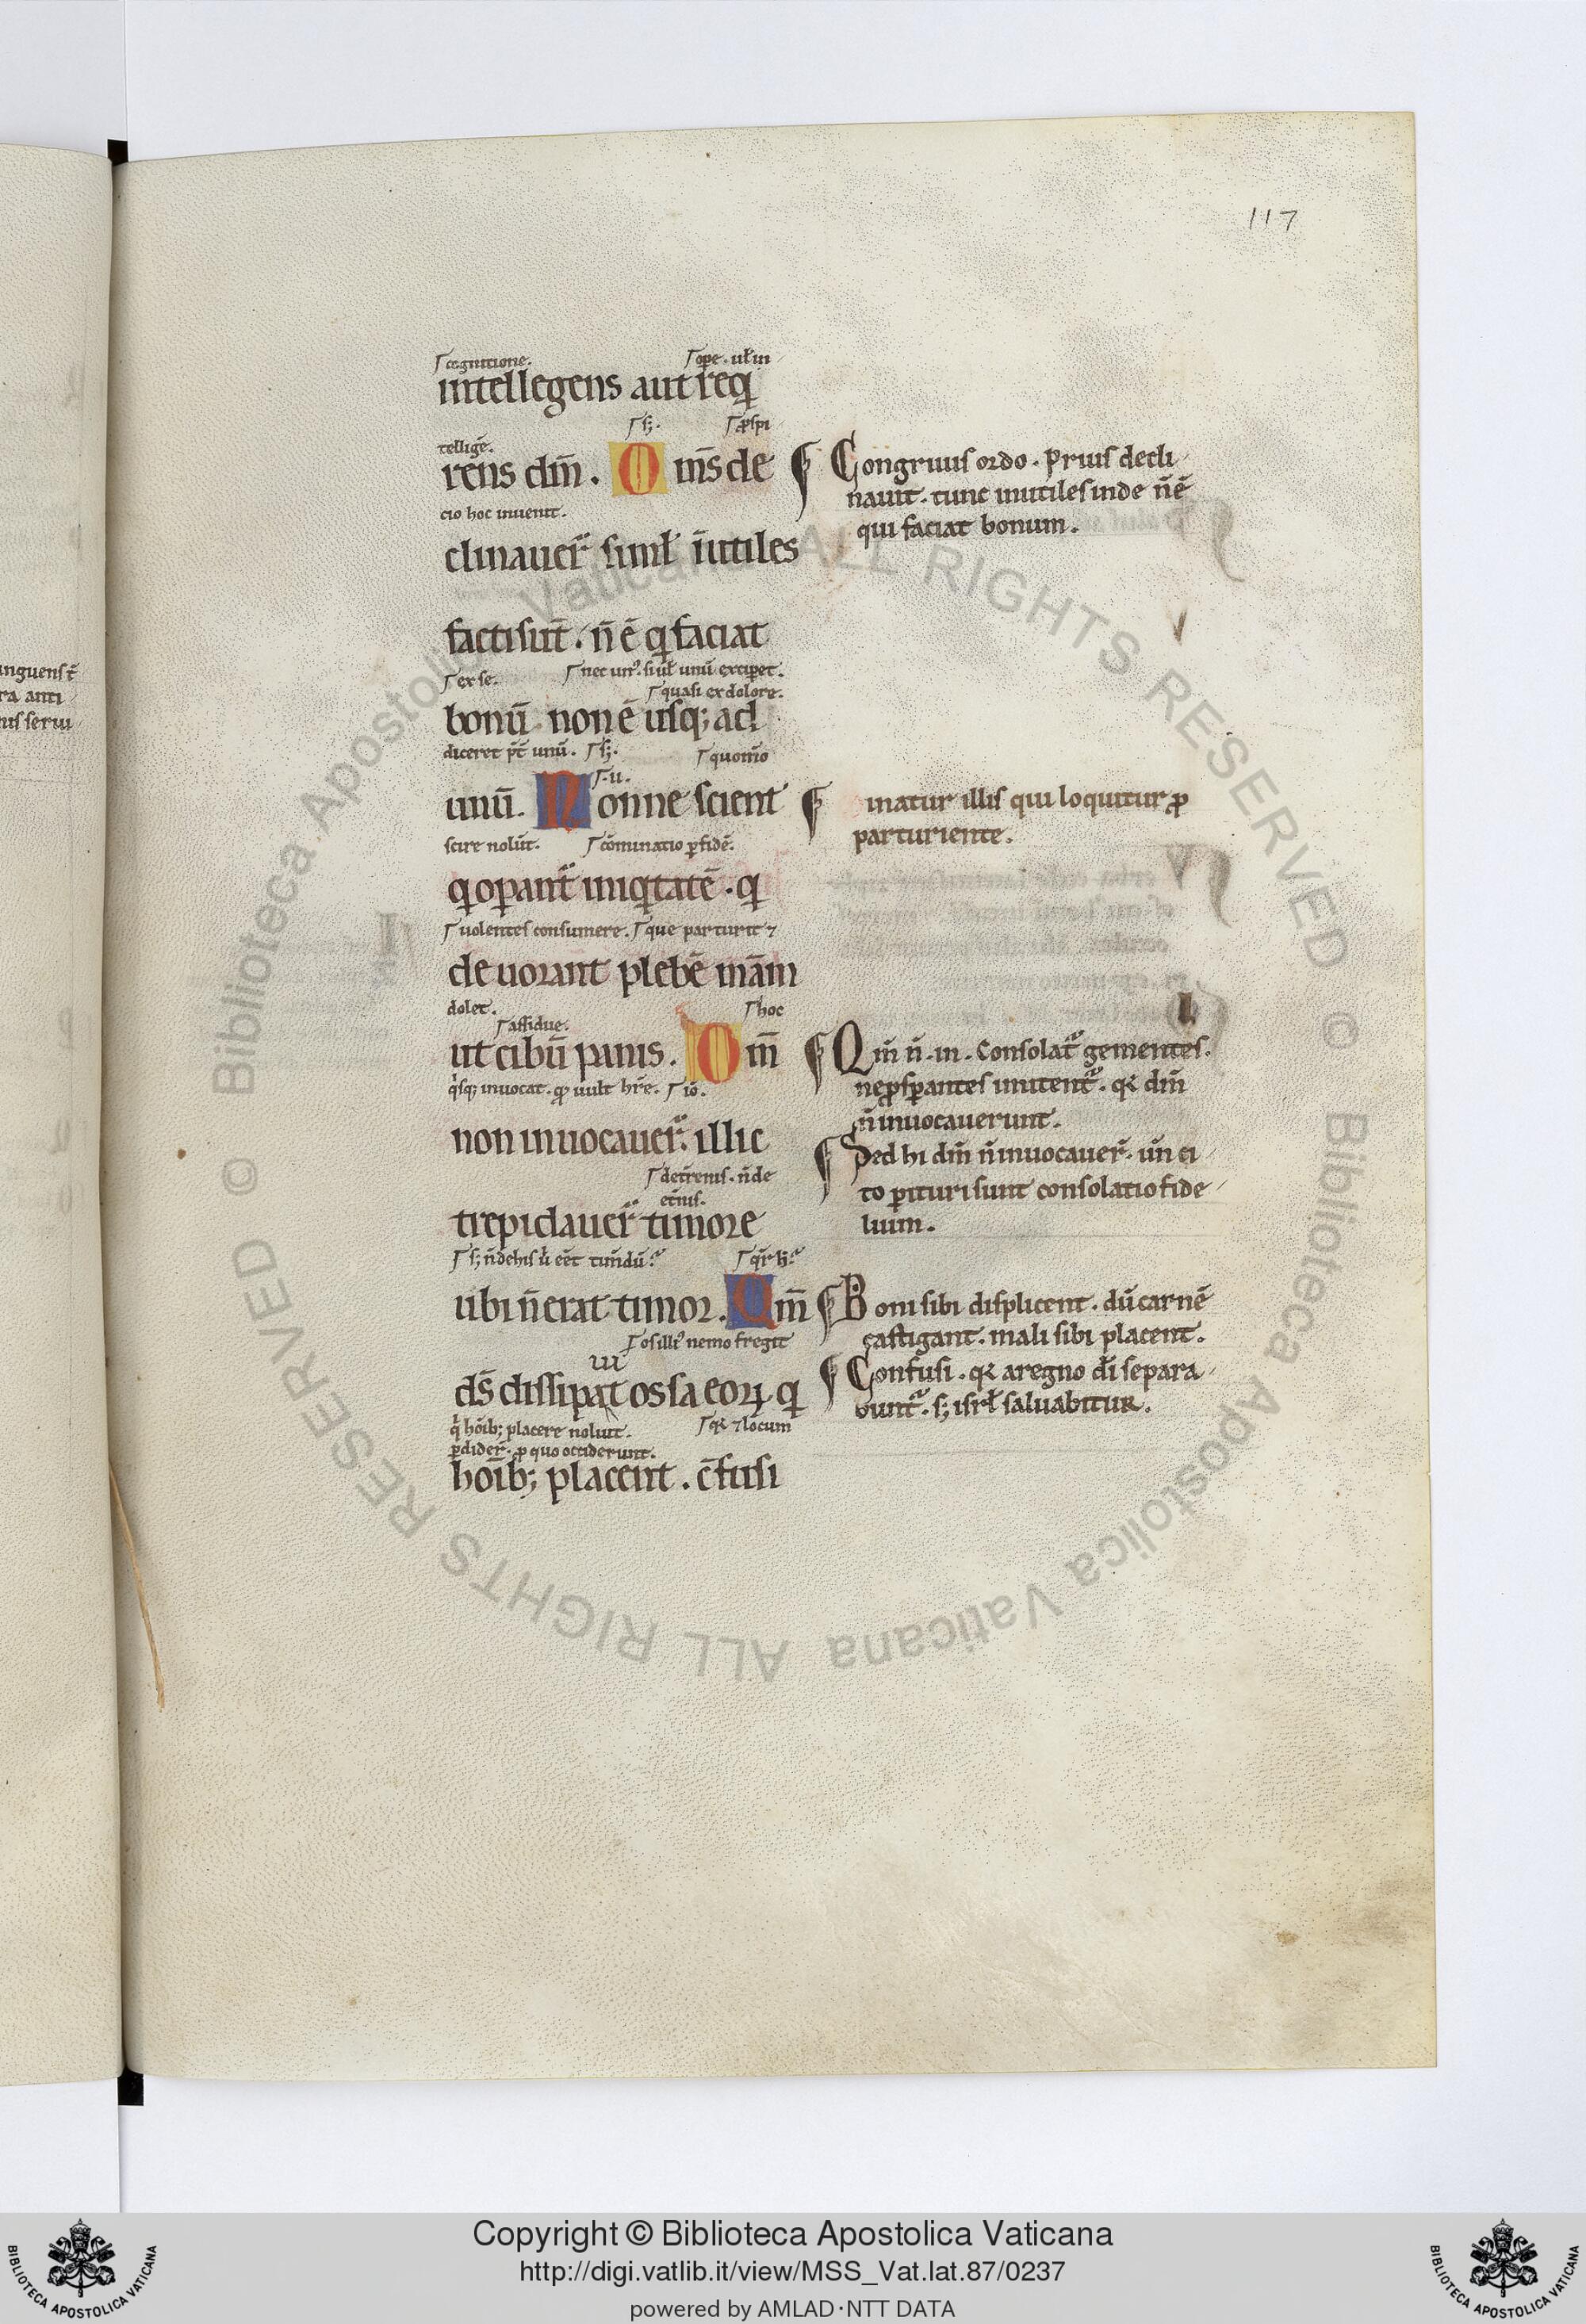 117
cognitione. ope. ul in
intellegens aut req
s;. pspi
tellige.
rens dm̄. Om̄s de
cio hoc inuenit.
clinauer̄ simł īutiles
facti sūt. n̄ ē q faciat
ex se. nec un⁹. si ul unū exciperet.
quasi ex dolore.
bonū non ē usq; ad
diceret pt̄ unū. s;. quom̄o
.u.
unū. Nonne scient
scire nolūt. cōminatio pfidē.
q opant̄ iniqtatē. q
uolentes consumere. que parturit ⁊
deuorant plebē m̄am
dolet. hoc
assidue.
ut cibū panis. Dm̄
q̇sq; inuocat. qd uult hr̄e. iō.
non inuocauer̄. illic
det̄renis. n̄ de
et̄nis.
trepidauer̄ timore
s; n̄ de his ū eēt timdū.
ubi n̄ erat timor. Qm̄
os illi⁹ nemo fregit
ds̄ dissipat ossa eoꝝ q
q̇ hōib; placere noluit. qꝛ ⁊ locum
pdider̄. p quo occiderunt.
hōib; placent. c̄fusi
Congruus ordo. Prius decli
nauit. tunc inutiles inde n̄ ē
qui faciat bonum.
inatur illis qui loquitur p
parturiente.
Qm̄ n̄. in. Consolat̄ gementes.
ne psperantes imitent̄. qꝛ dm̄
n̄ inuocauerunt.
Sed hi dm̄ n̄ inuocauer̄. un̄ ci
to pituri sunt consolatio fide
lium.
Boni sibi displicent. dū carnē
castigant. mali sibi placent.
Confusi. qꝛ a regno d̄i separa
bunt̄. s; isrł saluabitur.
Copyright © Biblioteca Apostolica Vaticana
http://digi.vatlib.it/view/MSS_Vat.lat.87/0237
powered by AMLAD·NTT DATA
BIBLIOTECA APOSTOLICA VATICANA
BIBLIOTECA APOSTOLICA VATICANA
© Biblioteca Apostolica Vaticana ALL RIGHTS RESERVED
© Biblioteca Apostolica Vaticana ALL RIGHTS RESERVED